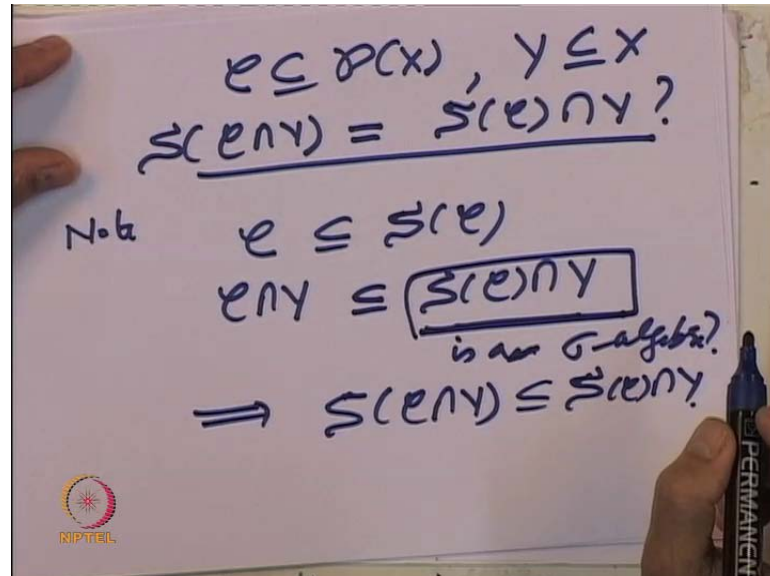 𝒞 ⊆ 𝒫(X), Y ⊆ X
S(𝒞∩Y) = S(𝒞)∩Y?
Note 𝒞 ⊆ S(𝒞)
𝒞∩Y ⊆ S(𝒞)∩Y
is a σ-algebra?
⟹ S(𝒞∩Y) ⊆ S(𝒞)∩Y.
NPTEL
PERMANEN